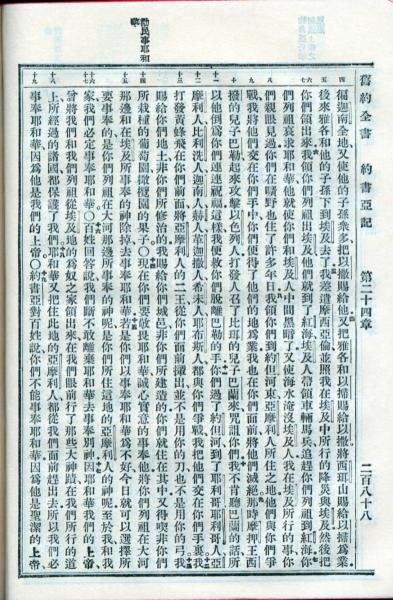 舊約全書 約書亞記 第二十四章 二百八十八
四 徧迦南全地又使他的子孫衆多把以撒賜給他又把雅各和以掃賜給以撒將西珥山賜給以掃爲業
五 後來雅各和他的子孫下到埃及去了我差遣摩西亞倫並照我在埃及中所行的降災與埃及然後把
六 七 你們領出來我領你們列祖出埃及他們就到了紅海埃及人帶領車輛馬兵追趕你們列祖到紅海你
們列祖哀求耶和華他就使你們和埃及人中間黑暗了又使海水淹沒埃及人我在埃及所行的事你
八 們親眼見過你們在曠野也住了許多年日我領你們到約但河東亞摩利人所住之地他們與你們爭
九 戰我將他們交在你們手中你們便得了他們的地爲業我也在你們面前將他們滅絕那時摩押王西
十 撥的兒子巴勒起來攻擊以色列人打發人召了比珥的兒子巴蘭來咒詛你們我不肯聽巴蘭的話所
十一 以他倒爲你們連連祝福這樣我便救你們脫離巴勒的手你們過了約但河到了耶利哥耶利哥人亞
十二 摩利人比利洗人迦南人赫人革迦撒人希未人耶布斯人都與你們爭戰我把他們交在你們手裏我
十三 打發黃蜂飛在你們前面將亞摩利人的二王從你們面前攆出並不是用你的刀也不是用你的弓我
賜給你們地土非你們所修治的我賜給你們城邑非你們所建造的你們就住在其中又得喫非你們
勸民事耶和華
十四 所栽種的葡萄園橄欖園的果子○現在你們要敬畏耶和華誠心實意的事奉他將你們列祖在大河
十五 那邊和在埃及所事奉的神除掉去事奉耶和華若是你們以事奉耶和華爲不好今日就可以選擇所
要事奉的是你們列祖在大河那邊所事奉的神呢是你們所住這地的亞摩利人的神呢至於我和我
十六 十七 家我們必定事奉耶和華○百姓回答說我們斷不敢離棄耶和華去事奉別神因耶和華我們的上帝
曾將我們和我們列祖從埃及地的爲奴之家領出來在我們眼前行了那些大神蹟在我們所行的道
十八 上所經過的諸國都保護了我們耶和華又把住此地的亞摩利人都從我們面前趕出去所以我們必
十九 事奉耶和華因爲他是我們的上帝○約書亞對百姓說你們不能事奉耶和華因爲他是聖潔的上帝